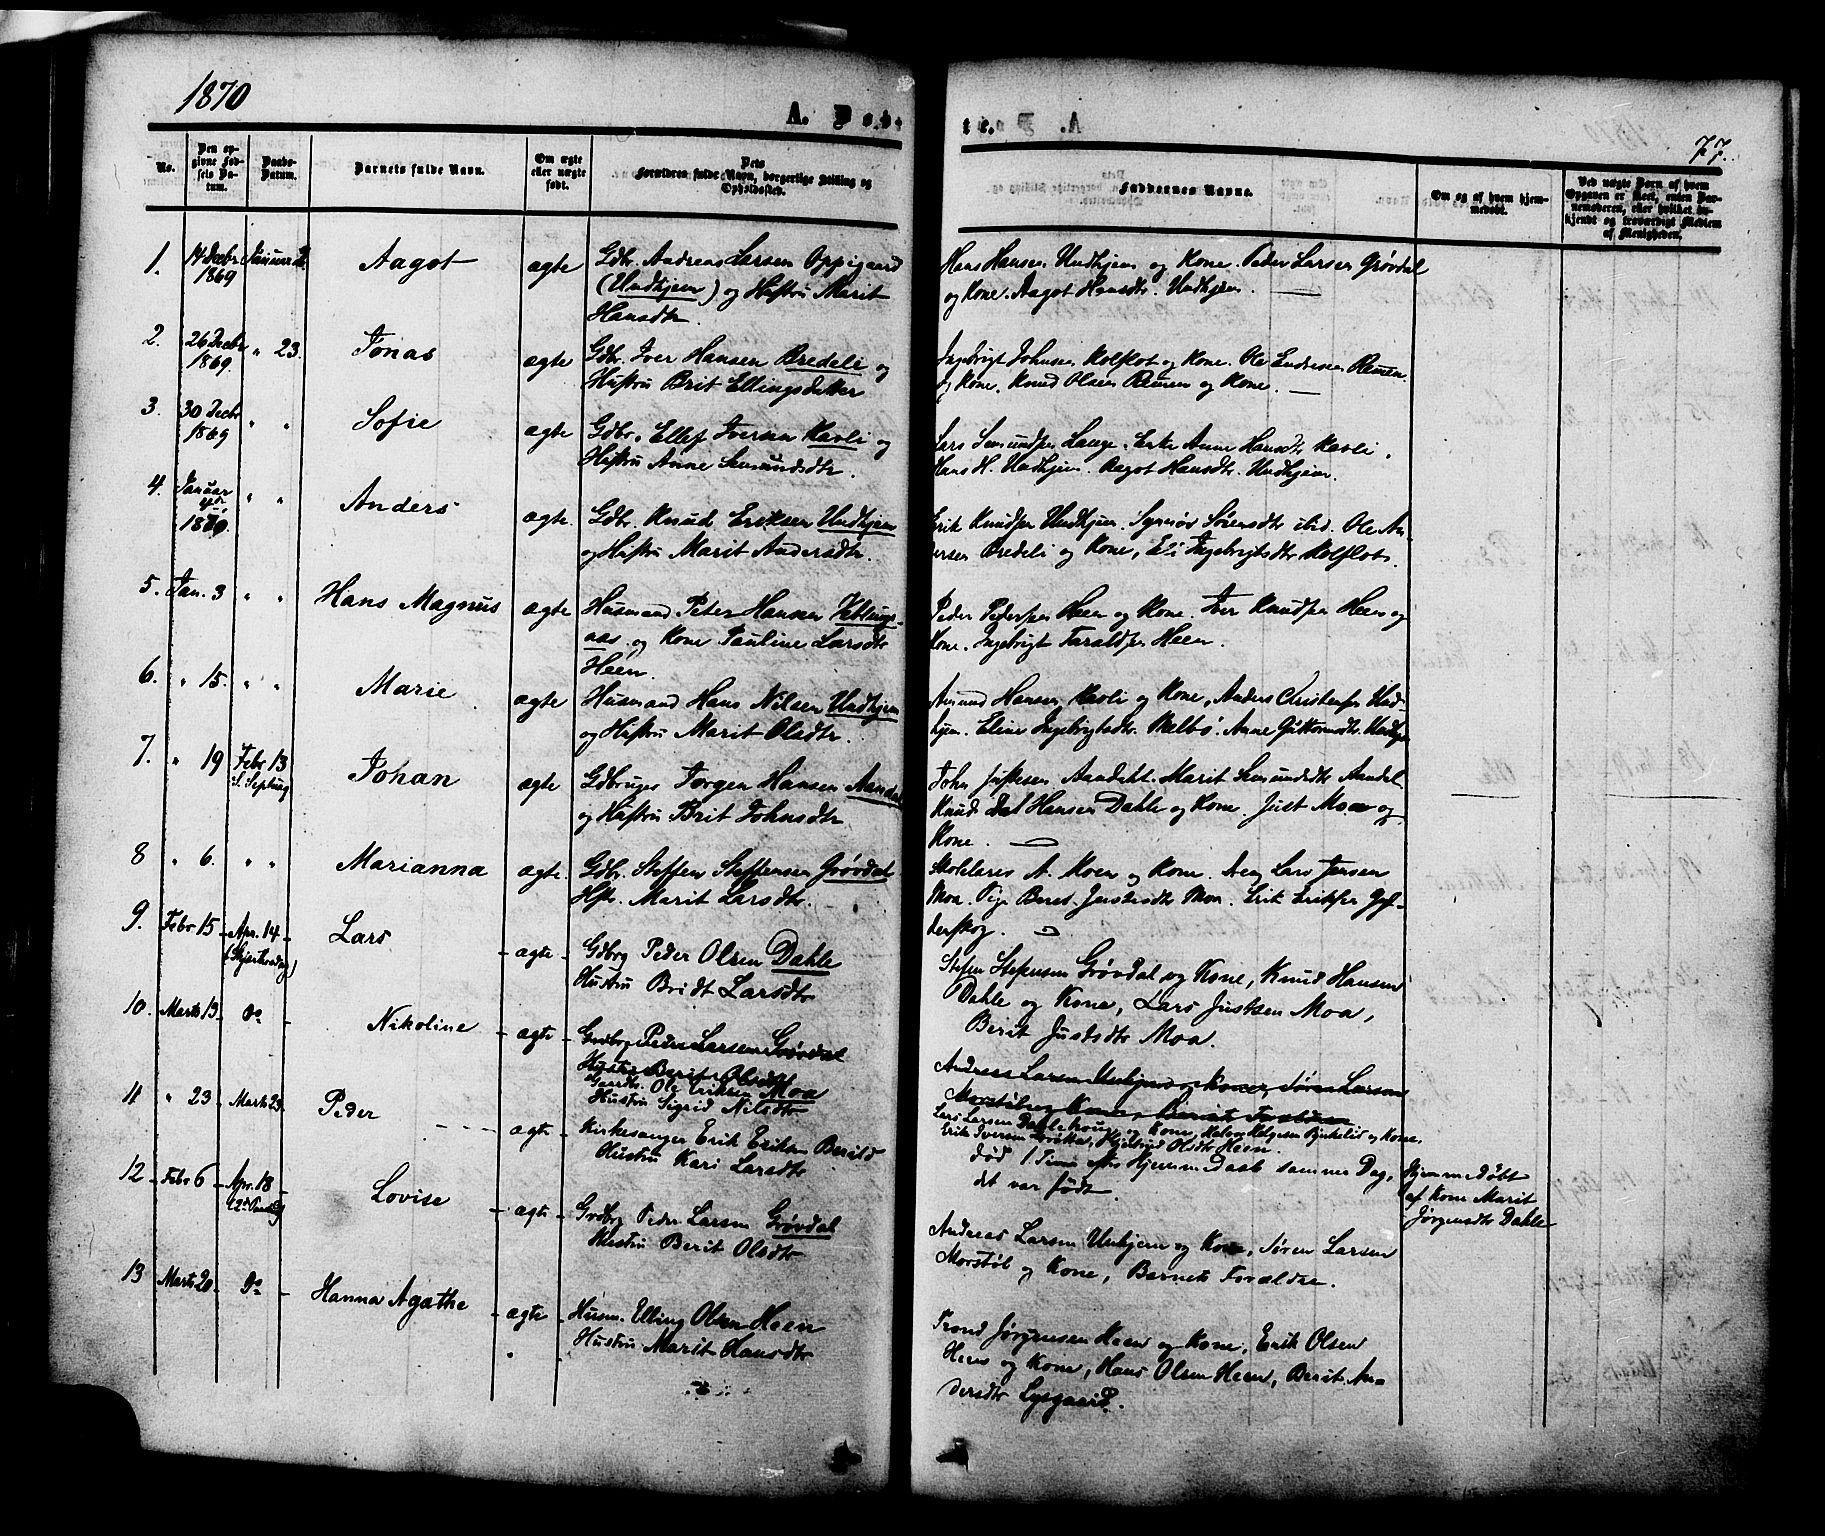 1870
A. Døbte.
77.
No.
Den opgivne Fødsels Datum.
Daabs-Datum.
Barnets fulde Navn.
Om ægte eller uægte født.
Dets Forældres fulde Navn, borgerlige Stilling og Opholdssted.
Faddernes Navne.
Om og af hvem hjemmedøbt.
Ved uægte Børn af hvem Opgaven er skeet, enten Barnemoderen, eller hvilket bekjendt og troværdigt Medlem af Menigheden.
1. 14 Decbr 1869 Januar Aagot ægte Gdbr. Andreas Larsen Oppigaard
(Undhjem) og Hustru Marit
Hansdtr.
Hans Hansen Undhjem og Kone. Peder Larsen Grøvdal
og Kone. Aagot Hansdtr. Undhjem.
2. 26 Decbr 1869 " 23. Jonas ægte Gdbr. Iver Hansen Bredeli og
Hustru Brit Ellingsdatter
Ingebrigt Johnsen Kolflot og Kone. Ole Endresen Remen
og Kone. Knud Olsen Remen og Kone.
3. 30 Decbr 1869 " " Sofie ægte Gdbr. Ellef Iversen Kavli og
Hustru Anne Semundsdtr.
Lars Semundsen Lange. Enke Anne Hansdtr Kavli.
Hans H. Undhjem. Aagot Hansdtr. Undhjem.
4. Januar 4de 1870. " " Anders ægte. Gdbr. Knud Eriksen Undhjem
og Hustru Marit Andersdtr.
Erik Knudsen Undhjem. Synnøv Sørensdtr ibid. Ole An-
dersen Bredeli og Kone, Eli Ingebrigtsdtr Kolflot.
5. Jan. 3 " " Hans Magnus ægte Husmand Peter Hansen
aas og Kone Pauline Larsdtr
Heen.
Peder Pedersen Heen og Kone. Iver Knudsen Heen og
Kone. Ingebrigt Taraldsen Heen.
6. " 15. " " Marie ægte Husmand Hans Nilsen Undhjem
og Hustru Marit Olsdtr.
Amund Hansen Kavli og Kone, Anders Christensen Und-
hjem. Eline Ingebrigtsdtr. Melbø. Anne Guttormsdtr. Undhjem
7. " 19 Febr 13 S. Septuag Johan ægte Gdbruger Jørgen Hansen Aandal
og Hustru Brit Johnsdtr
John Justesen Aandahl. Marit Semundsdtr Aandal
Knud Hansen Dahle og Kone. Just Moa og
Kone.
8 " 6. " " Marianna ægte. Gdbr. Steffen Steffensen Grøvdal
Hstr. Marit Larsdtr.
Skolelærer A. Moen og Kone. Lars Jensen
Moa. Pige Beret Justsdtr Moa. Erik Eriksen Gyl-
denskog.
9. Febr 15 Apr. 14 (Skjærthorsdag) Lars ægte Gdbrg Peder Olsen Dahle
Hustru Bridt Larsdtr
Stefen Stefensen Grøvdal og Kone, Knud Hansen
Dahle og Kone, Lars Justsen Moa,
Berit Justsdtr Moa.
10. Marts 13 Do Nikoline ægte Grdbrg Peder Larsen Grøvdal
Hustru Berit Olsdtr
Gaardbr. Ole Eriksen Moa
Hustru Sigrid Nilsdtr
Andreas Larsen Unhjem og Kone, Søren Larsen
Morstøl og Kone, Barnets Forældre
Lars Larsen Dahle og Kone, Halvor Helgesen Bjerkelid og Kone
Erik Iversen, Hjelbrid Olsdtr Heen.
11 " 23 Marts 23 Peder ægte Kirkesanger Erik Eriksen Berild
Hustru Kari Larsdtr
død 1 Time efter Hjemmedaab samme Dag,
det var født.
Hjemmedøbt
af Kone Marit
Jørgensdtr Dahle
12 Febr 6 Apr. 18 (2den Paaskedag Lovise ægte Grdbrg Peder Larsen Grøvdal
Hustru Berit Olsdtr
Andreas Larsen Unhjem og Kone, Søren Larsen
Morstøl og Kone, Barnets Forældre.
13 Marts 20 Do Hanna Agathe ægte Husm. Elling Olsen Heen
Hustru Marit Hansdtr
Trond Jørgensen Heen og Kone, Erik Olsen
Heen og Kone, Hans Olsen Heen, Berit An-
dersdtr Lysgaard.